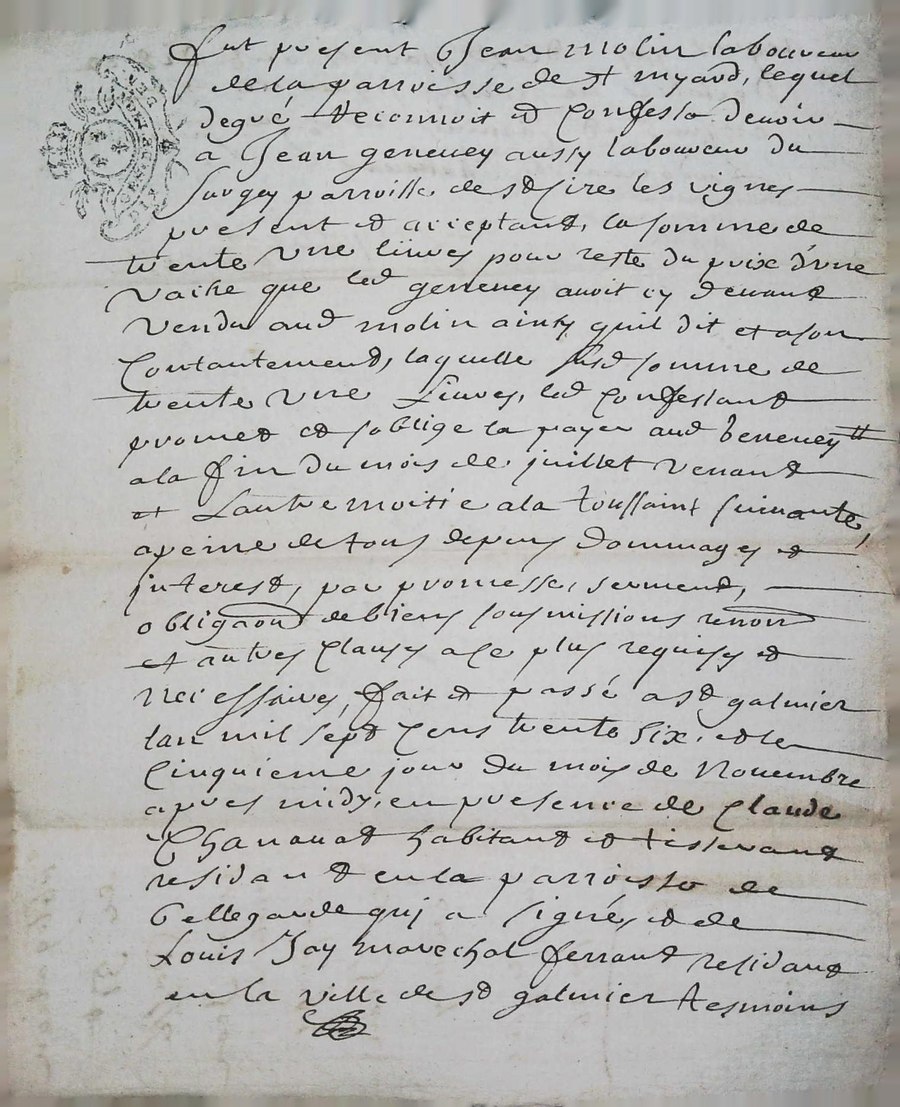 fut present Jean molin laboureur
de la parroisse de st myard, lequel
degré Reconnoit et Confesse devoir
a Jean geneuey aussy laboureur du
parroisse de st sire les vignes
present et acceptant, la somme de
trente une livres pour reste du prix d'une
vache que led geneuey auoit cy deuant
vendu aud molin ainsy quil dit et a son
Contantement, laquelle susd somme de
trente une Liures, led Confessant
promet et soblige la payer aud geneuey
a la fin du mois de juillet venant
et Lautre moitie a la toussaint suiuante,
a peine de tous depens dommages et
interest, par promesse, serment,
obligaon de biens sousmissions renon
et autres Clauses a ce plus requises et
necessaires, fait et passé a st galmier
lan mil sept Cens trente six, et le
Cinquieme jour du mois de Nouembre
apres midy, en presence de Claude
Chanauat habitant et tisserant
residant en la parroisse de
bellegarde qui a signé, et de
Louis Jay marechal ferrant residant
en la ville de st galmier tesmoins